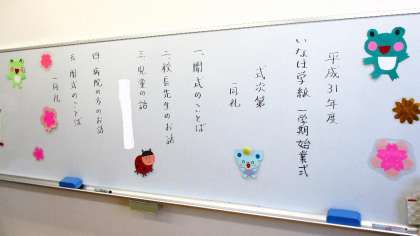 平成31年度
いなほ学級 一学期始業式
式次第
一同礼
一、開式のことば
二、校長先生のお話
三、児童の話
四、病院の方のお話
五、閉式のことば
一同礼